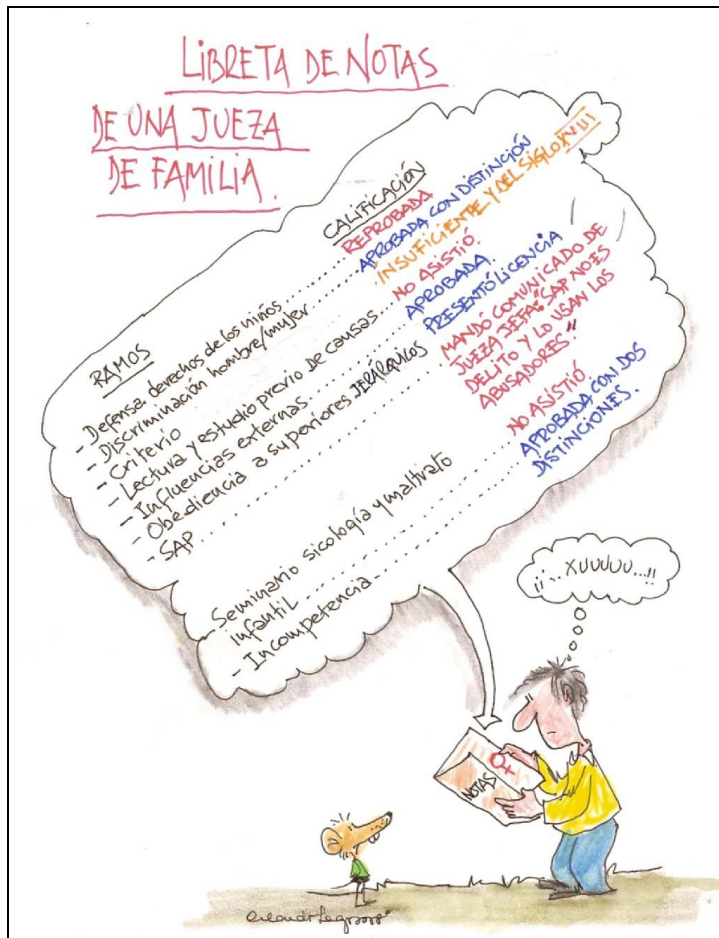 LIBRETA DE NOTAS
DE UNA JUEZA
DE FAMILIA.
RAMOS CALIFICACIÓN
- Defensa derechos de los niños.... REPROBADA
- Discriminación hombre/mujer....... APROBADA CON DISTINCIÓN
- Criterio........ INSUFICIENTE Y DEL SIGLO XVIII
- Lectura y estudio previo de causas NO ASISTIÓ.
- Influencias externas........ APROBADA.
- Obediencia a superiores JERÁRQUICOS PRESENTÓ LICENCIA
- SAP........ MANDÓ COMUNICADO DE
JUEZA JEFA: "SAP NO ES
DELITO Y LO USAN LOS
ABUSADORES."
- Seminario sicología y maltrato
infantil........ NO ASISTIÓ
- Incompetencia........ APROBADA CON DOS
DISTINCIONES.
¡¡...XUUUUU...!!
NOTAS